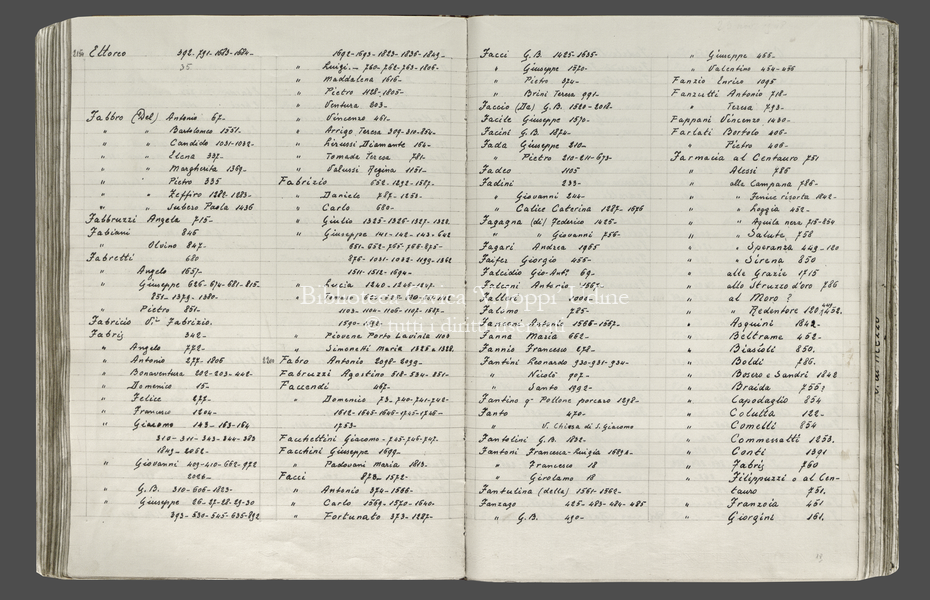 Ettoreo 392-791-1683-1684-
35
Fabbro (Del) Antonio 67-
" " Bartolomeo 1551.
" " Candido 1031-1032-
" " Elena 337-
" " Margherita 1369-
" " Pietro 335
" " Zeffiro 1282-1283-
" " Subero Paola 1436
Fabbruzzi Angelo 715-
Fabiani 846
" Olvino 847.
Fabretti 680
" Angelo 1657-
" Giuseppe 626-674-681-815-
851-1379-1380-
" Pietro 851-
Fabricio Vi Fabrizio.
Fabris 342-
" Angelo 772-
" Antonio 277-1806
" Bonaventura 202-203-442-
" Domenico 15-
" Felice 277-
" Francesco 1204-
" Giacomo 143-163-164
310-311-343-344-383
1849-2052-
" Giovanni 409-410-662-972
2026-
" G.B. 310-606-1823-
" Giuseppe 26-27-28-29-30
393-530-545-635-892
1692-1693-1823-1836-1849-
" Luigi.- 760-762-763-1806-
" Maddalena 1616-
" Pietro 1128-1805-
" Ventura 803-
" Vincenzo 461-
" Arrigo Teresa 309-310-864-
" Lirussi Diamante 164-
" Tomada Teresa 781-
" Valussi Regina 1151-
Fabrizio 652-1292-1587-
" Daniele 787-1253-
" Carlo 680-
" Giulio 1325-1326-1327-1328
" Giuseppe 141-142-143-642
651-652-765-766-875-
876-1031-1032-1199-1362
1511-1512-1694-
" Lucia 1240-1241-1247-
1103-1104-1106-1107-1587-
1590-1591-
" Piovene Porto Lavinia 1103
" Simonetti Maria 1325 a 1328.
Fabro Antonio 2098-2099-
Fabruzzi Agostino 518-534-851-
Faccendi 467-
" Domenico 73-740-741-742-
1612-1645-1646-1745-1746-
1753-
Facchettini Giacomo -745-746-747-
Facchini Giuseppe 1699-
" Padovani Maria 1813-
Facci 873-1572-
" Antonio 374-1666-
" Carlo 1569-1570-1640-
" Fortunato 373-1287-
Facci G.B. 1425-1635-
" Giuseppe 1870-
" Pietro 374-
" Brini Teresa 991-
Faccio (De) G.B. 1520-2018-
Facile Giuseppe 1570-
Facini G.B. 1874-
Fada Giuseppe 210-
" Pietro 210-211-673-
Fadeo 1105
Fadini 233-
" Giovanni 244-
" Calice Caterina 1287-1676
Fagagna (di) Federico 1425-
" " Giovanni 756-
Fagari Andrea 1965
Faifer Giorgio 455-
Falcidio Gio-Antº 69-
Falconi Antonio 1567-
Falomo 785-
Fanna Antonio 1566-1567-
Fanna Maria 662-
Fannio Francesco 278-
Fantini Leonardo 930-931-934-
" Nicolò 907-
" Santo 1992-
Fantino qm Pollone porcaro 1298-
Fanto 470-
" V. Chiesa di S. Giacomo
Fantolini G.B. 1832-
Fantoni Francesca-Luigia 1689a-
" Francesco 18
" Girolamo 18
Fantulina (della) 1561-1562-
Fanzago 425-483-484-485
" G.B. 490-
" Giuseppe 455-
" Valentino 454-456
Fanzio Enrico 1095
Fanzutti Antonio 718-
" Teresa 793-
Fappani Vincenzo 1430-
Farlati Bortolo 406-
" Pietro 406-
Farmacia al Centauro 751
" Alessi 786
" alla Campana 786-
" " Fenice risorta 1842-
" " Loggia 452-
" " Aquila nera 715-864
" " Salute 758
" " Speranza 449-120
" " Sirena 850
" alle Grazie 1715
" allo Struzzo d'oro 786
" al Moro ?
" " Redentore 120
" Asquini 1842-
" Beltrame 452-
" Biasioli 850.
" Boldi 786-
" Bosero e Sandri 1842
" Braida 755?
" Capodaglio 864
" Colutta 122-
" Comelli 854
" Commessatti 1253.
" Conti 1391
" Fabris 760
" Filippuzzi o al Cen-
tauro 751.
" Franzoia 451
" Giorgini 161.
Biblioteca Civica V. Joppi Udine
tutti i diritti riservati